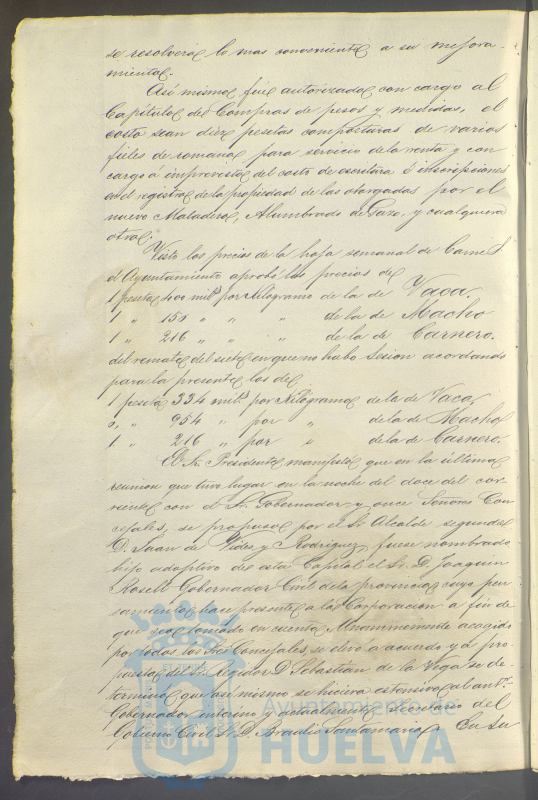 se resolverá lo mas conveniente a su mejora-
miento.
Asi mismo fué autorizado con cargo al
Capítulo de Compras de pesos y medidas, el
costo sean diez pesetas composturas de varios
fieles de romana para servicio de la renta y con
cargo á imprevistos del costo de escritura é inscripciones
en el registro de la propiedad de las otorgadas por el
nuevo Matadero, Alumbrado de Gas, y cualquiera
otra.
Visto los precios de la hoja semanal de Carnes
el Ayuntamiento aprobó los precios de
1 peseta 400 mils por Kilogramo de la de Vaca.
1 " 150 " " " de la de Macho
1 " 216 " " " de la de Carnero.
del remate del siete en que no hubo Sesion acordando
para la presente los de
1 peseta 334 mils por Kilogramo de la de Vaca
" " 954 " por " de la de Macho
1 " 216 " por " de la de Carnero.
El Sr. Presidente manifestó que en la última
reunion que tuvo lugar en la noche del doce del cor-
riente con el Sr. Gobernador y once Señores Con-
cejales, se propuso por el Sr Alcalde segundo
D. Juan de Vides y Rodriguez, fuese nombrado
hijo adoptivo de esta Capital el Sr. D. Joaquin
Rosell Gobernador Civil de la provincia cuyo pen-
samiento hace presente a la Corporacion a fin de
que sea tomado en cuenta. Unanimemente acogido
por todos los Sres Concejales, se elevó a acuerdo y á pro-
puesta del Sr. Regidor D Sebastián de la Vega se de-
terminó que asi mismo se hiciera estensivo al antr.
Gobernador interino y actualmente Secretario del
Gobierno Civil Sr. D. Braulio Santamaria. En su
Ayuntamiento de
HUELVA